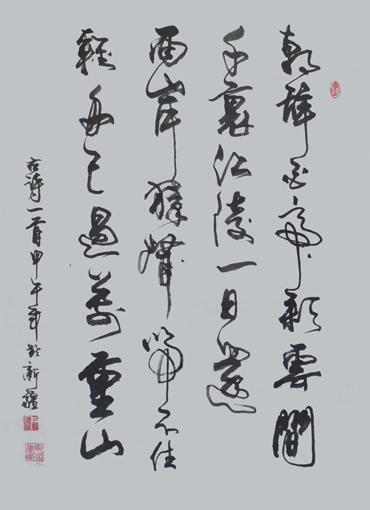 朝辭白帝彩雲間
千裏江陵一日還
兩岸猿聲啼不住
輕舟已過萬重山
古詩一首甲午年於新疆